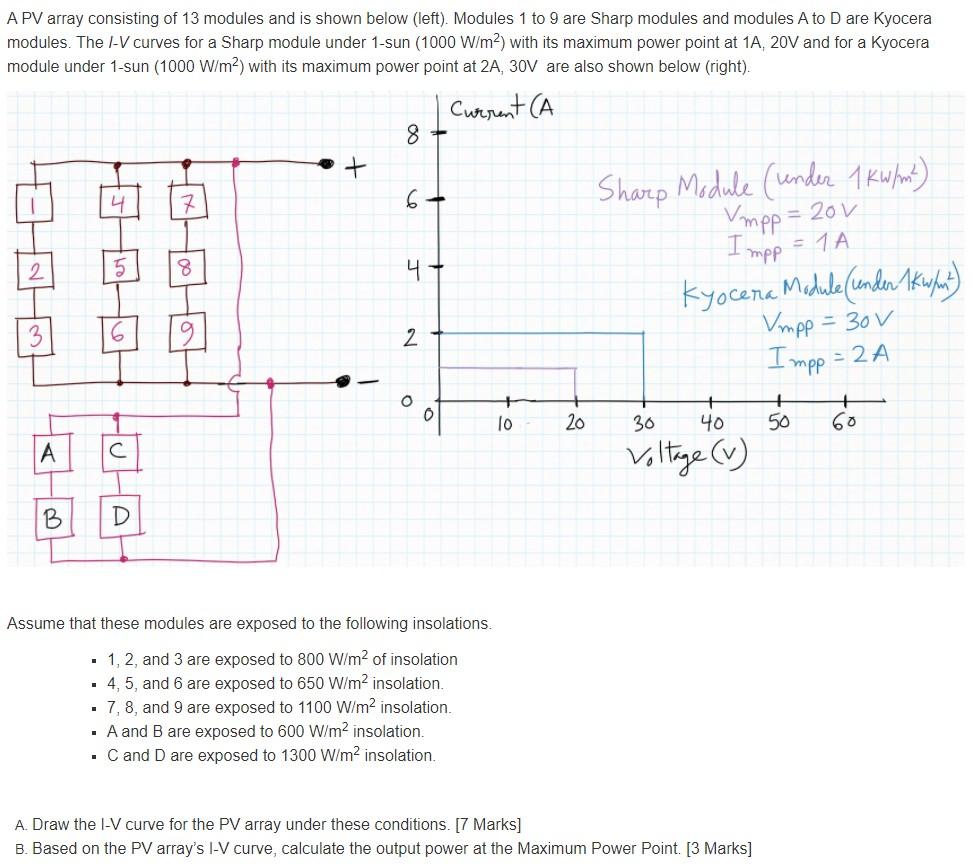 A PV array consisting of 13 modules and is shown below (left). Modules 1 to 9 are Sharp modules and modules A to D are Kyocera
modules. The I-V curves for a Sharp module under 1-sun (1000 W/m²) with its maximum power point at 1A, 20V and for a Kyocera
module under 1-sun (1000 W/m²) with its maximum power point at 2A, 30V are also shown below (right).
Current (A
8
+
Sharp Module (under 1KW/m²)
1 4 7
6
Vmpp = 20V
Impp = 1A
2 5 8
4
Kyocera Module (under 1Kw/m²)
3 6 9
2
Vmpp = 30V
Impp = 2A
-
0
0 10 20 30 40 50 60
A C
Voltage (V)
B D
Assume that these modules are exposed to the following insolations.
▪ 1, 2, and 3 are exposed to 800 W/m² of insolation
▪ 4, 5, and 6 are exposed to 650 W/m² insolation.
▪ 7, 8, and 9 are exposed to 1100 W/m² insolation.
▪ A and B are exposed to 600 W/m² insolation.
▪ C and D are exposed to 1300 W/m² insolation.
A. Draw the I-V curve for the PV array under these conditions. [7 Marks]
B. Based on the PV array's I-V curve, calculate the output power at the Maximum Power Point. [3 Marks]